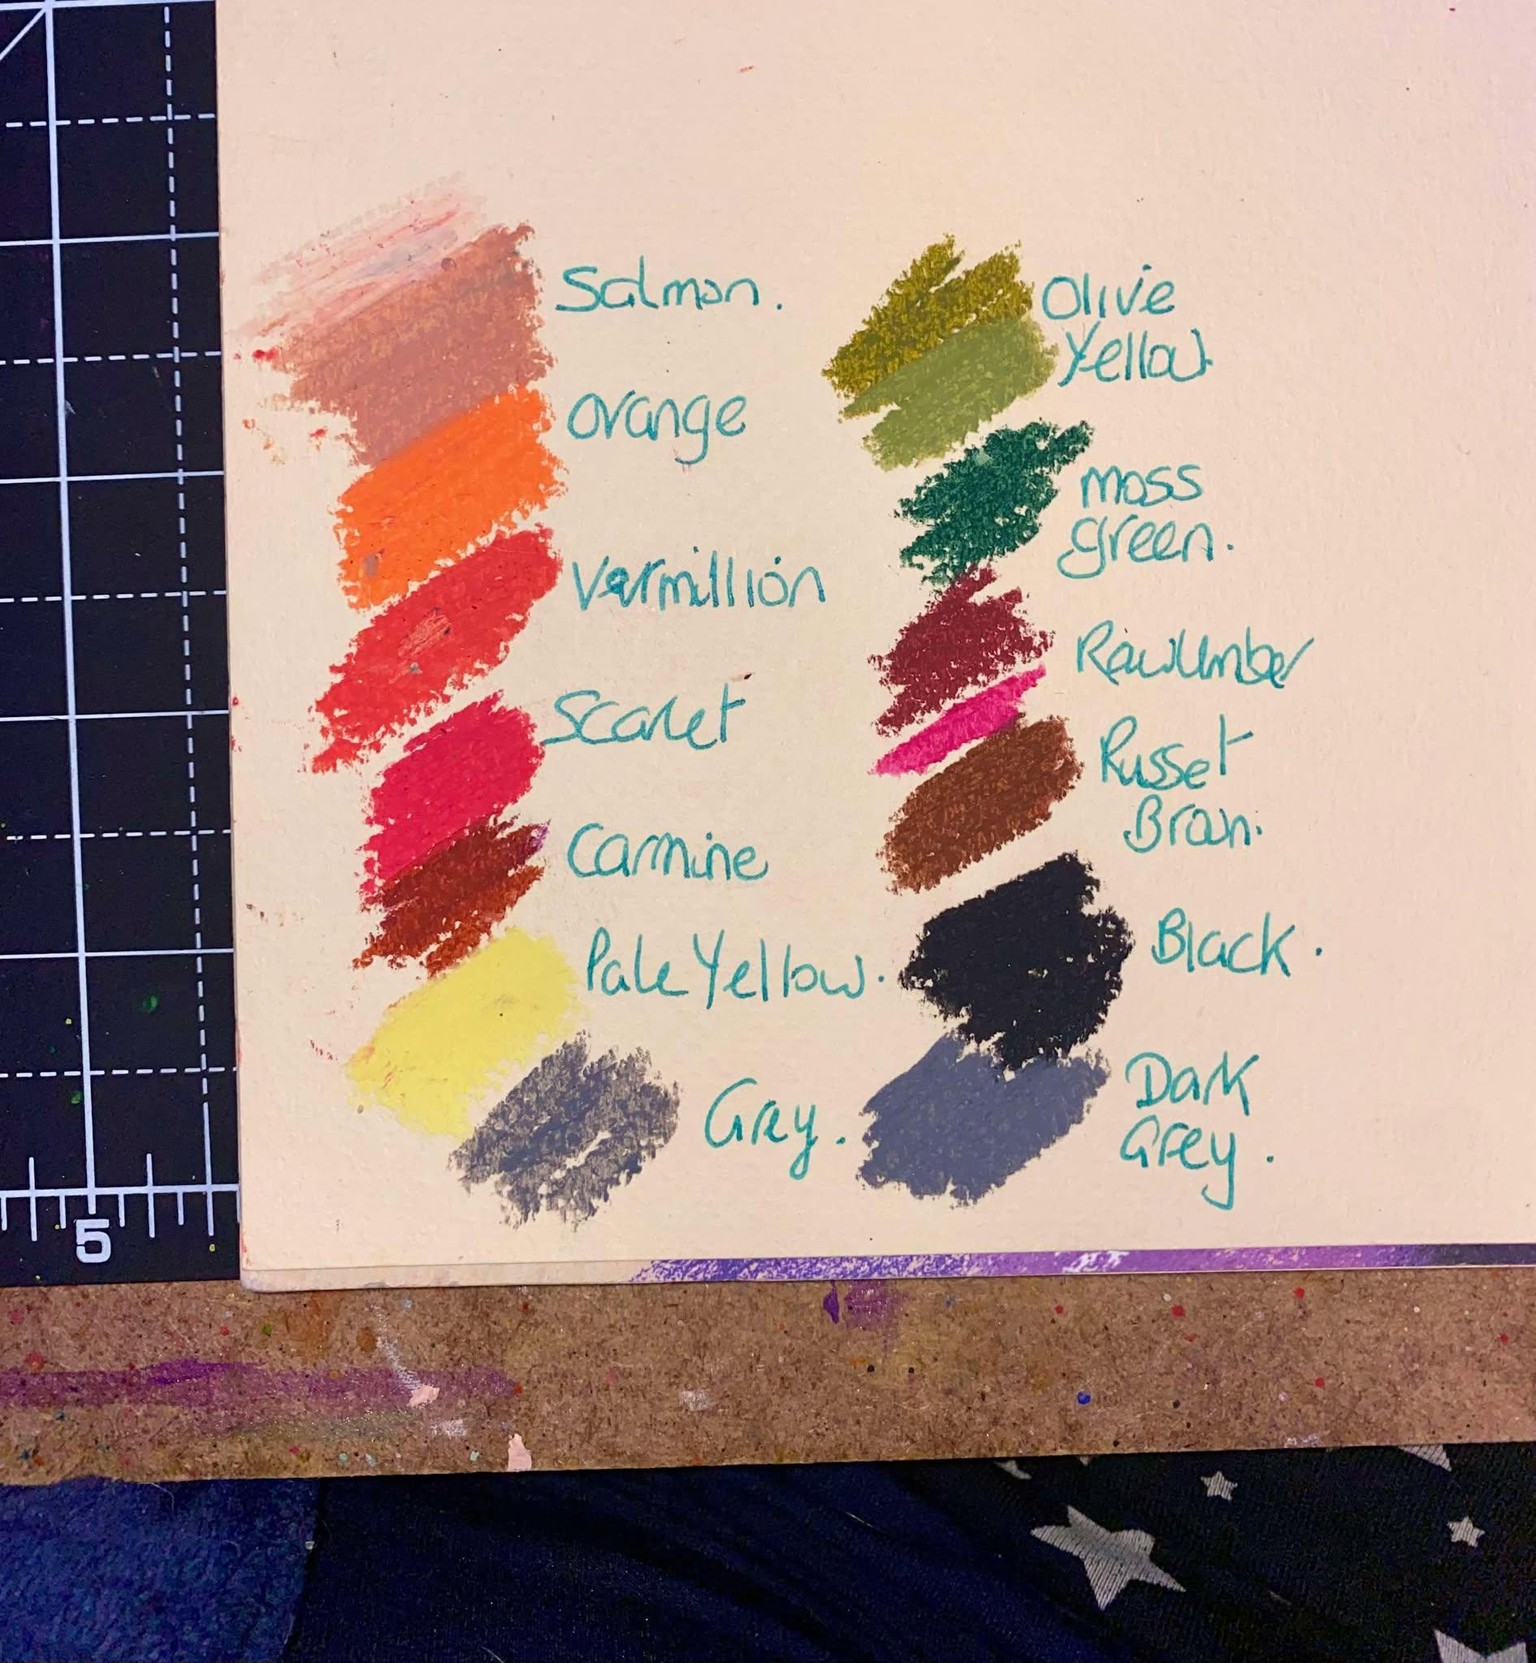 Salmon.
Orange
Vermillion
Scarlet
Carmine
Pale Yellow.
Grey.
Olive
Yellow
Moss
Green.
Raw Umber
Russet
Brown.
Black.
Dark
Grey.
5